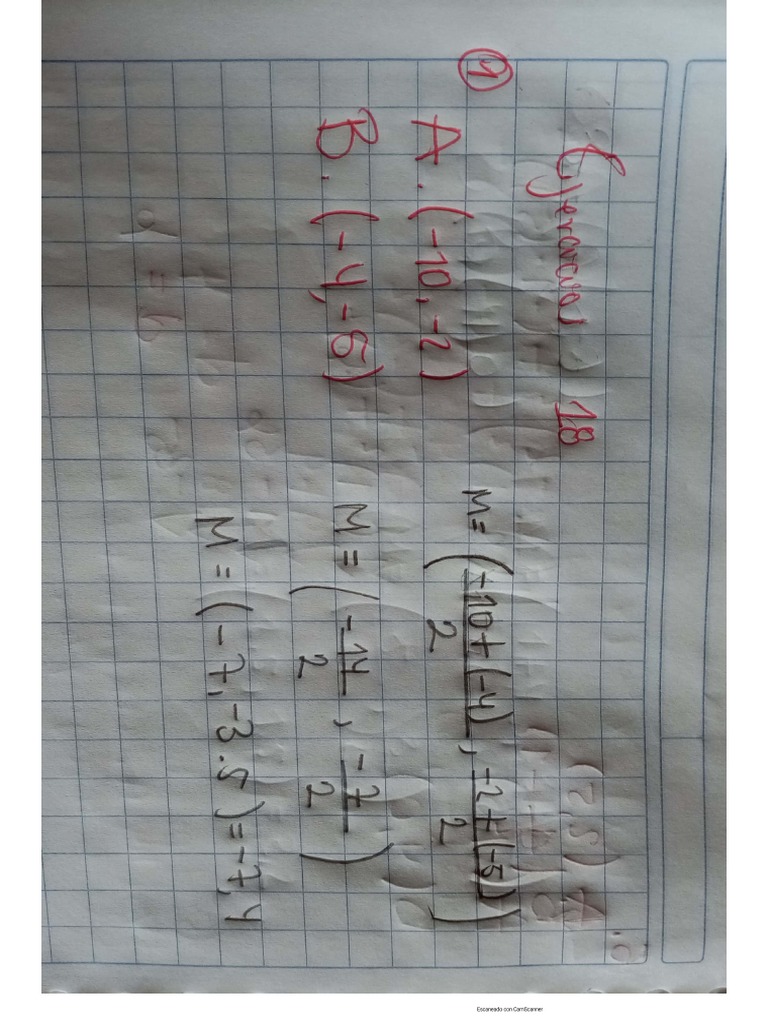 Ejercicios 18
1
A. (-10, -2)
B. (-4, -5)
M = (-10 + (-4) / 2 , -2 + (-5) / 2)
M = (-14 / 2 , -7 / 2)
M = (-7, -3.5) = -7, 4
Escaneado con CamScanner